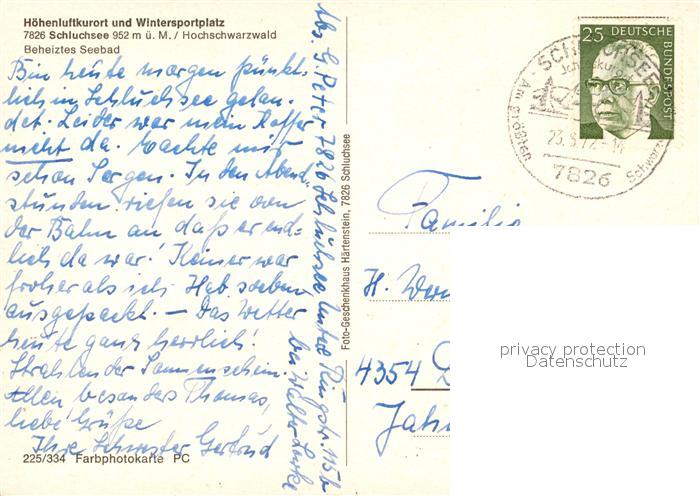 Höhenluftkurort und Wintersportplatz
7826 Schluchsee 952 m ü. M. / Hochschwarzwald
Beheiztes Seebad
Bin heute morgen pünkt-
lich in Schluchsee gelan-
det. Leider war mein Koffer
nicht da. Machte mir
schon Sorgen. In den Abend-
stunden riefen sie von
der Bahn an daß er end-
lich da war! Keiner war
froher als ich. Hab soeben
ausgepackt. — Das Wetter
heute ganz herrlich!
Strahlender Sonnenschein.
Allen besonders Thomas,
liebe Grüße
Ihre Schwester Gertrud
225/334 Farbphotokarte PC
7826 Schluchsee, Untere
bei
Foto-Geschenkhaus Härtenstein, 7826 Schluchsee
25 DEUTSCHE BUNDESPOST
SCHLUCHSEE
Am größten
Schwarzw
23.5.72-14
7826
Familie
H. Wer
4354
Jahn
privacy protection
Datenschutz